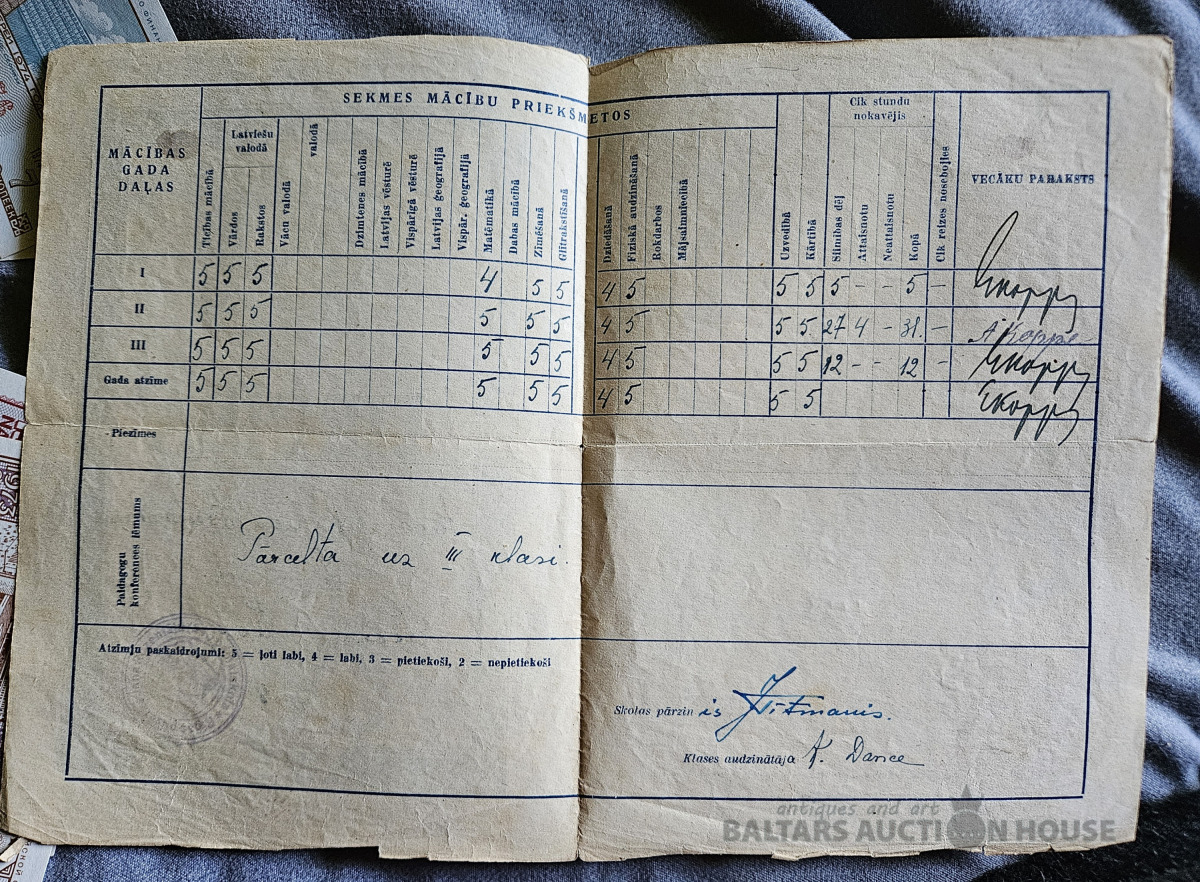 SEKMES MĀCĪBU PRIEKŠMETOS
MĀCĪBAS
GADA
DAĻAS
Ticības mācībā
Latviešu
valodā
Vārdos
Rakstos
Vācu valodā
valodā
Dzimtenes mācībā
Latvijas vēsturē
Vispārīgā vēsturē
Latvijas ģeografijā
Vispār. ģeografijā
Matēmatikā
Dabas mācībā
Zīmēšanā
Glītrakstīšanā
Dziedāšanā
Fiziskā audzināšanā
Rokdarbos
Mājsaimniecībā
Uzvedībā
Kārtībā
Cik stundu
nokavējis
Slimības dēļ
Attaisnotu
Neattaisnotu
Kopā
Cik reizes nosebojies
VECĀKU PARAKSTS
I 5 5 5 4 5 5 4 5 5 5 5 - - 5 -
II 5 5 5 5 5 5 4 5 5 5 27 4 - 31. - A Koppe
III 5 5 5 5 5 5 4 5 5 5 12 - - 12 -
Gada atzīme 5 5 5 5 5 5 4 5 5 5
Piezīmes
Paidagogu
konferences lēmums
Pārcelta uz III klasi.
Atzīmju paskaidrojumi: 5 = ļoti labi, 4 = labi, 3 = pietiekoši, 2 = nepietiekoši
Skolas pārzinis
Klases audzinātāja K. Dance
antiques and art
BALTARS AUCTION HOUSE